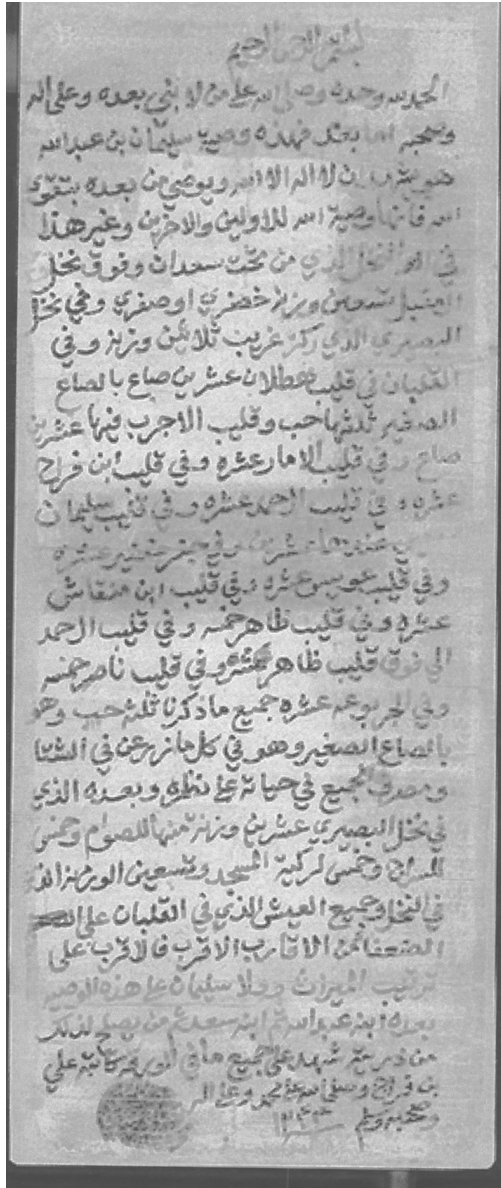 بسم الله الرحمن الرحيم
الحمد لله وحده وصلى الله على من لا نبي بعده وعلى اله
وصحبه اما بعد فهذه وصية سليمان بن عبدالله
هو يشهد ان لا اله الا الله ويوصي من بعده بتقوى
الله فانها وصية الله للاولين والاخرين وغير هذا
في النخل الذي من تحت سعدان وفوق نخل
تسعين وزنة خضري او صفري وفي نخل
البصيري الذي ركز غريب ثلاثين وزنة وفي
القلبان في قليب هطلان عشرين صاع بالصاع
الصغير ثلثها حب وقليب الاجرب فيها عشرين
صاع وفي قليب الامار عشره وفي قليب ابن فراج
عشره وفي قليب الحمد عشره وفي قليب سليمان
عشرين وفي جفر عشره
وفي قليب عشره وفي قليب ابن منقاش
عشره وفي قليب ظاهر خمسه وفي قليب الحمد
الي فوق قليب ظاهر عشره وفي قليب ناصر خمسه
وفي عشره جميع ما ذكرنا ثلثه حب وهو
بالصاع الصغير وهو في كل ما زرعن في الشتا
ومصرف الجميع في حياته على نظره وبعده الذي
في نخل البصيري عشرين وزنة منها للصوام وخمس
للسراج وخمس لركية المسجد وتسعين الوزنة الذي
في النخل وجميع العيش الذي في القلبان على
الضعفا من الاقارب الاقرب فالاقرب على
ترتيب الميراث وولا سليمان على هذه الوصيه
بعده ابنه عبدالله ثم ابنه سعد ثم من يصلح لذلك
من ذريته شهد على جميع ما في الورقه كاتبه علي
بن فراج وصلى الله على محمد وعلى اله
وصحبه وسلم ١٣٤٣